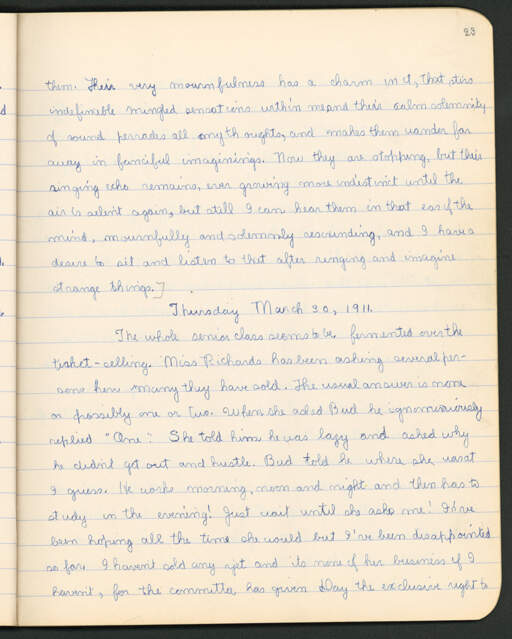 23
them. Their very mournfulness has a charm in it, that stirs
indefinable mingled sensations within me and their calm solemnity
of sound pervades all my thoughts, and makes them wander far
away in fanciful imaginings. Now they are stopping, but their
singing echo remains, ever growing more indistinct until the
air is silent again, but still I can hear them in that ear of the
mind, mournfully and solemnly resounding, and I have a
desire to sit and listen to that after ringing and imagine
strange things.]
Thursday March 30, 1911.
The whole senior class seems to be fermented over the
ticket-selling. Miss Richards has been asking several per-
sons how many they have sold. The usual answer is none
or possibly one or two. When she asked Bud he ignominiously
replied "One". She told him he was lazy and asked why
he didn't get out and hustle. Bud told he where she was at
I guess. He works morning, noon and night and then has to
study in the evening! Just wait until she asks me! I've
been hoping all the time she would but I've been disappointed
so far. I haven't sold any yet and its none of her business if I
haven't, for the committee, has given Day the exclusive right to